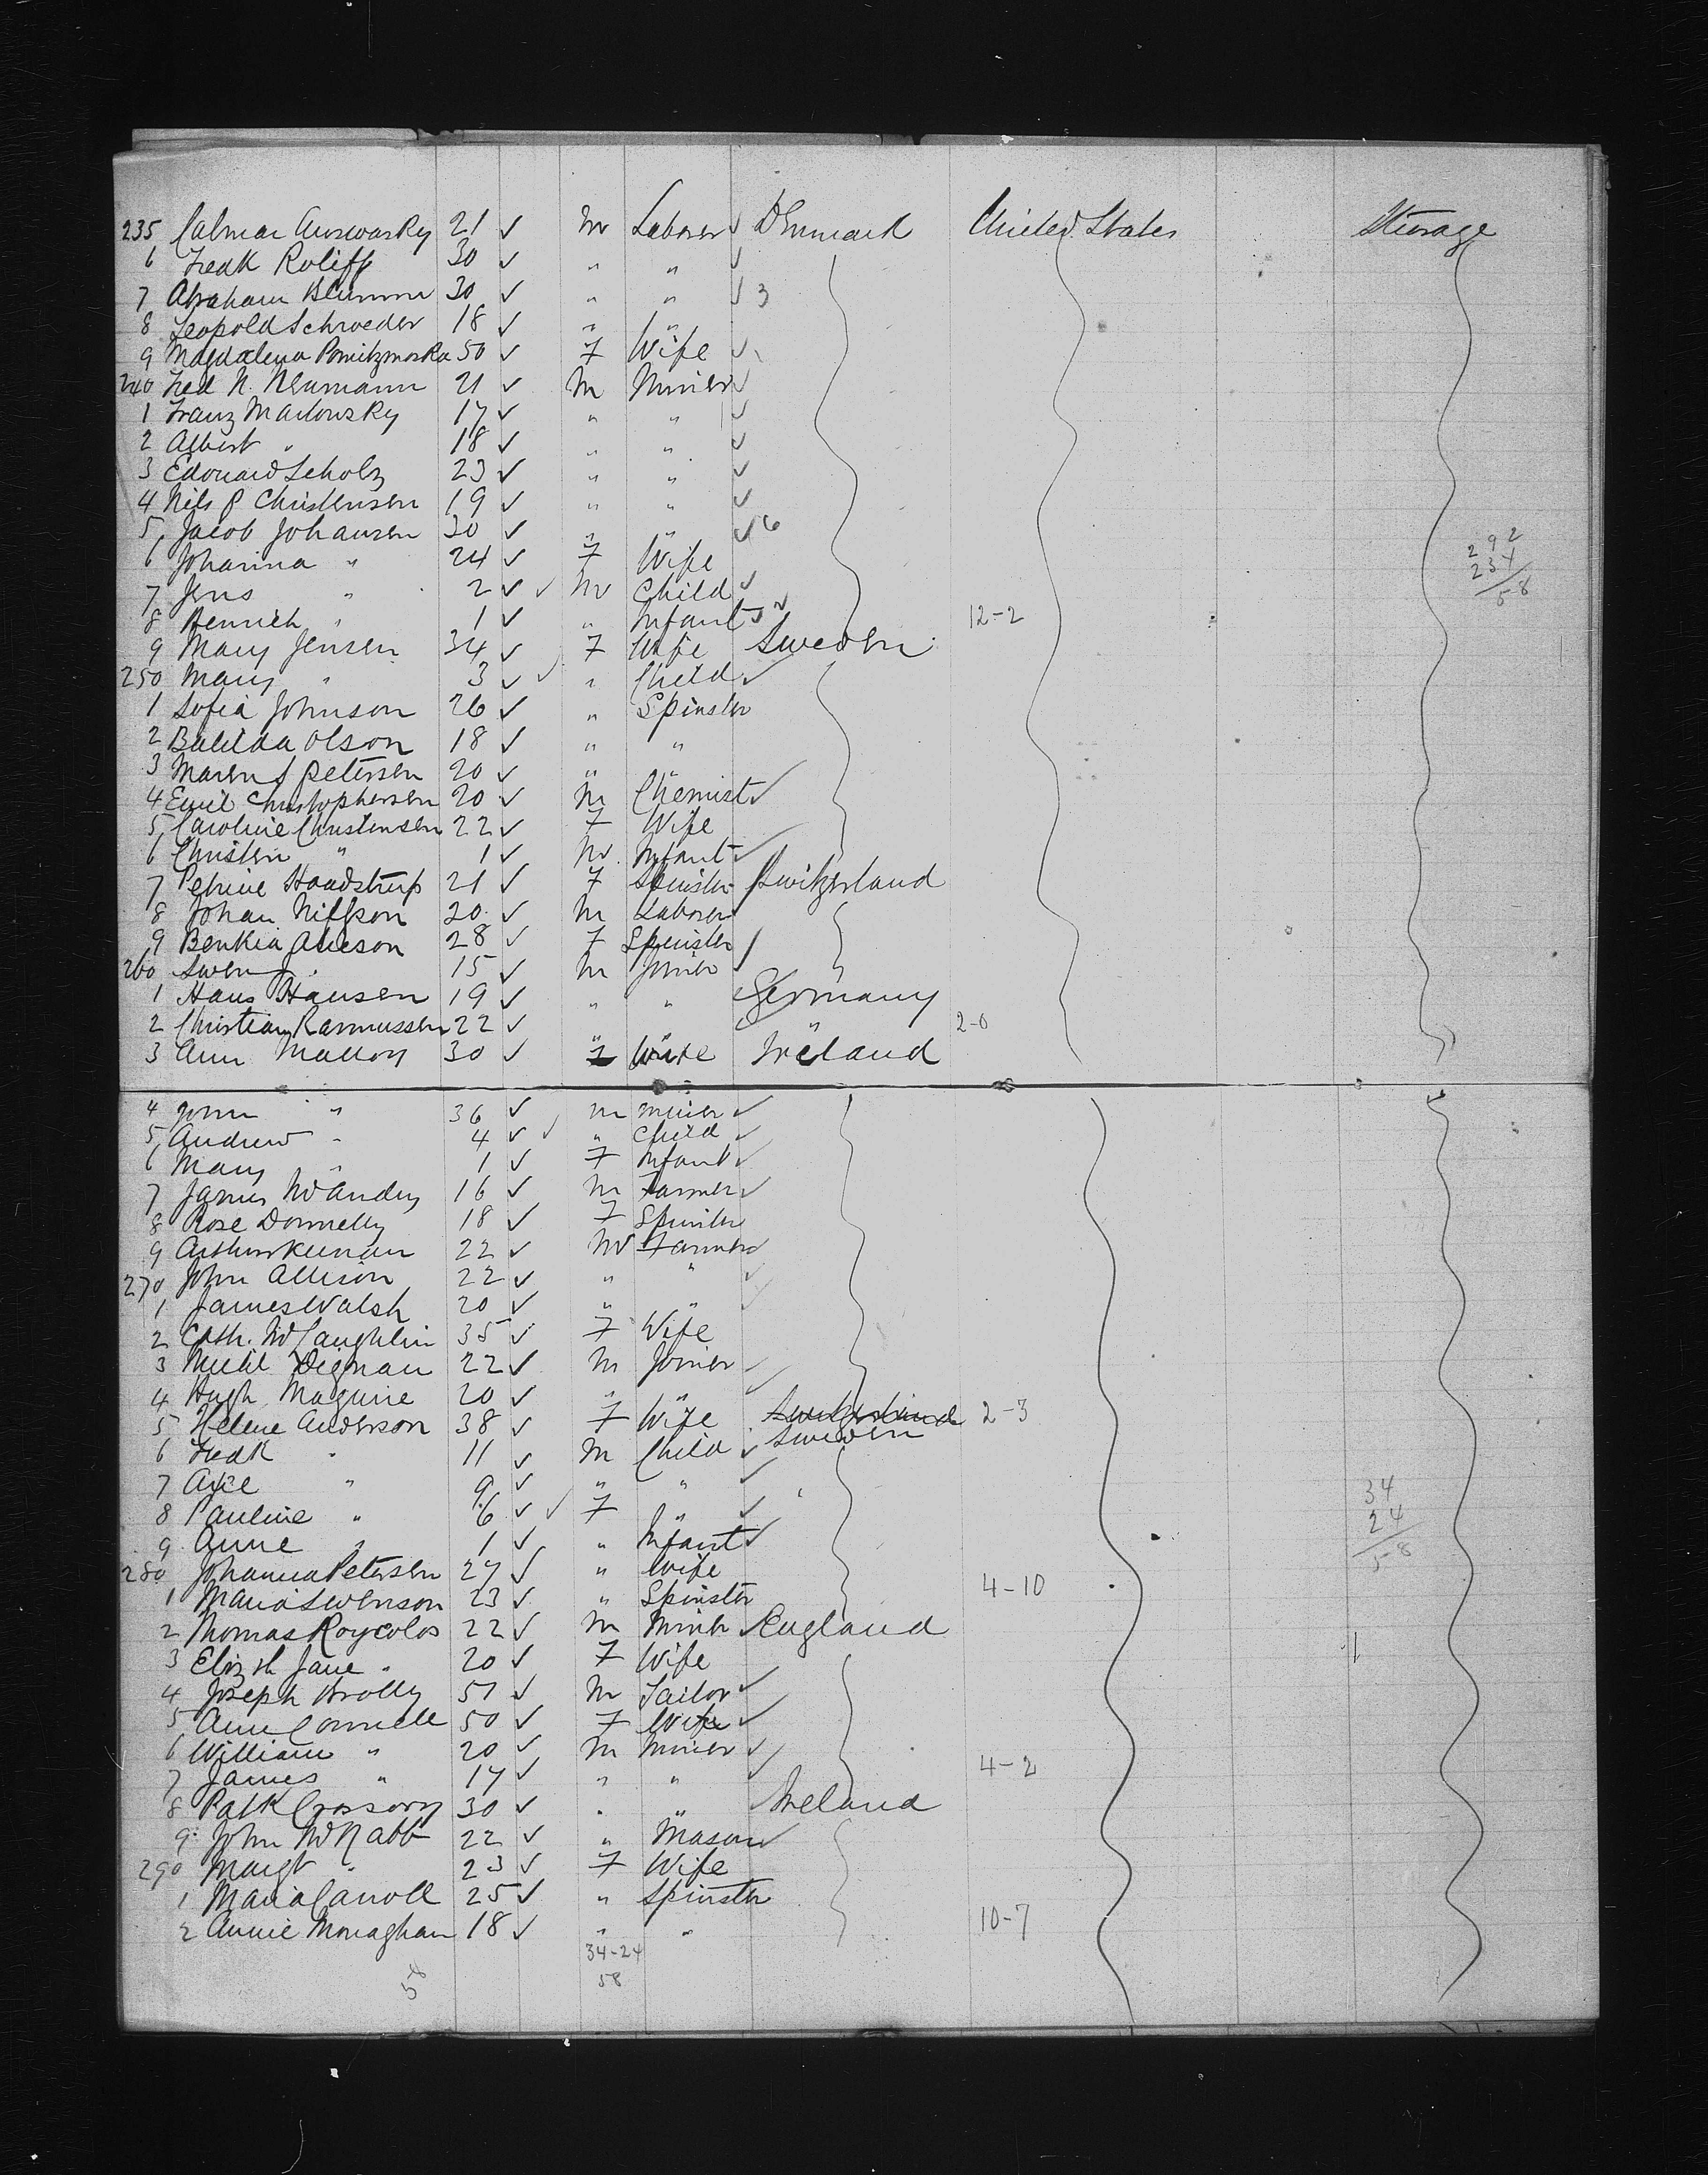 235 Calmar 21 ✓ M Laborer ✓ Denmark United States Storage
6 Fredk Roliff 30 ✓ " " ✓
7 Abraham Blumm 30 ✓ " " ✓ 3
8 Leopold Schroeder 18 ✓ " "
9 Magdalena 50 ✓ F Wife ✓
240 Fred N. Neumann 21 ✓ M Miner ✓
1 Franz Markowsky 17 ✓ " " ✓
2 Albert " 18 ✓ " " ✓
3 Edouard Scholz 23 ✓ " " ✓
4 Nils P Christensen 19 ✓ " " ✓
5 Jacob Johansen 30 ✓ " " ✓ 6
6 Johanna " 24 ✓ F Wife
7 Jens " 2 ✓ ✓ M Child ✓
8 Henrich " 1 ✓ " Infant ✓ 12-2
9 Mary Jensen 34 ✓ F Wife Sweden
250 Mary " 3 ✓ ✓ " Child ✓
1 Sofia Johnson 26 ✓ " Spinster
2 Olson 18 ✓ " "
3 Maren J Petersen 20 ✓ " "
4 Emil Christophersen 20 ✓ M Chemist ✓
5 Caroline Christensen 22 ✓ F Wife
6 Christen " 1 ✓ M Infant ✓
7 Petrine Haadstrup 21 ✓ F Spinster Switzerland
8 Johan Nilsson 20 ✓ M Laborer
9 28 ✓ F Spinster
260 Swen 15 ✓ M Joiner
1 Hans Hansen 19 ✓ " " Germany
2 Christian Rasmussen 22 ✓ " " " 2-0
3 Ann Malloy 30 ✓ F Wife Ireland
4 John " 36 ✓ M Miner ✓
5 Andrew " 4 ✓ ✓ " Child ✓
6 Mary " 1 ✓ F Infant ✓
7 James 16 ✓ M Farmer ✓
8 Rose Donnelly 18 ✓ F Spinster
9 Arthur Keenan 22 ✓ M Farmer ✓
270 John Allison 22 ✓ " " ✓
1 James Walsh 20 ✓ " " ✓
2 Cath. McLaughlin 35 ✓ F Wife
3 Michl Dignan 22 ✓ M Joiner ✓
4 Hugh Maguire 20 ✓ " " ✓
5 Helene Anderson 38 ✓ F Wife Switzerland 2-3
Sweden
6 Fredk " 11 ✓ M Child ✓
7 Axel " 9 ✓ " " ✓
8 Pauline " 6 ✓ ✓ F " ✓
9 Anne " 1 ✓ " Infant ✓
280 Johanna Petersen 27 ✓ " Wife
1 Maria Swenson 23 ✓ " Spinster 4-10
2 Thomas 22 ✓ M Miner ✓ England
3 Elizth Jane " 20 ✓ F Wife
4 Joseph Brolly 51 ✓ M Tailor ✓
5 Ann Connell 50 ✓ F Wife ✓
6 William " 20 ✓ M Miner ✓
7 James " 17 ✓ " " ✓ 4-2
8 Patk 30 ✓ " " Ireland
9 John McNabb 22 ✓ " Mason ✓
290 Margt " 23 ✓ F Wife
1 Maria Carroll 25 ✓ " Spinster
2 Annie Monaghan 18 ✓ " " 10-7
34-24
58 58
292
234
58
34
24
58